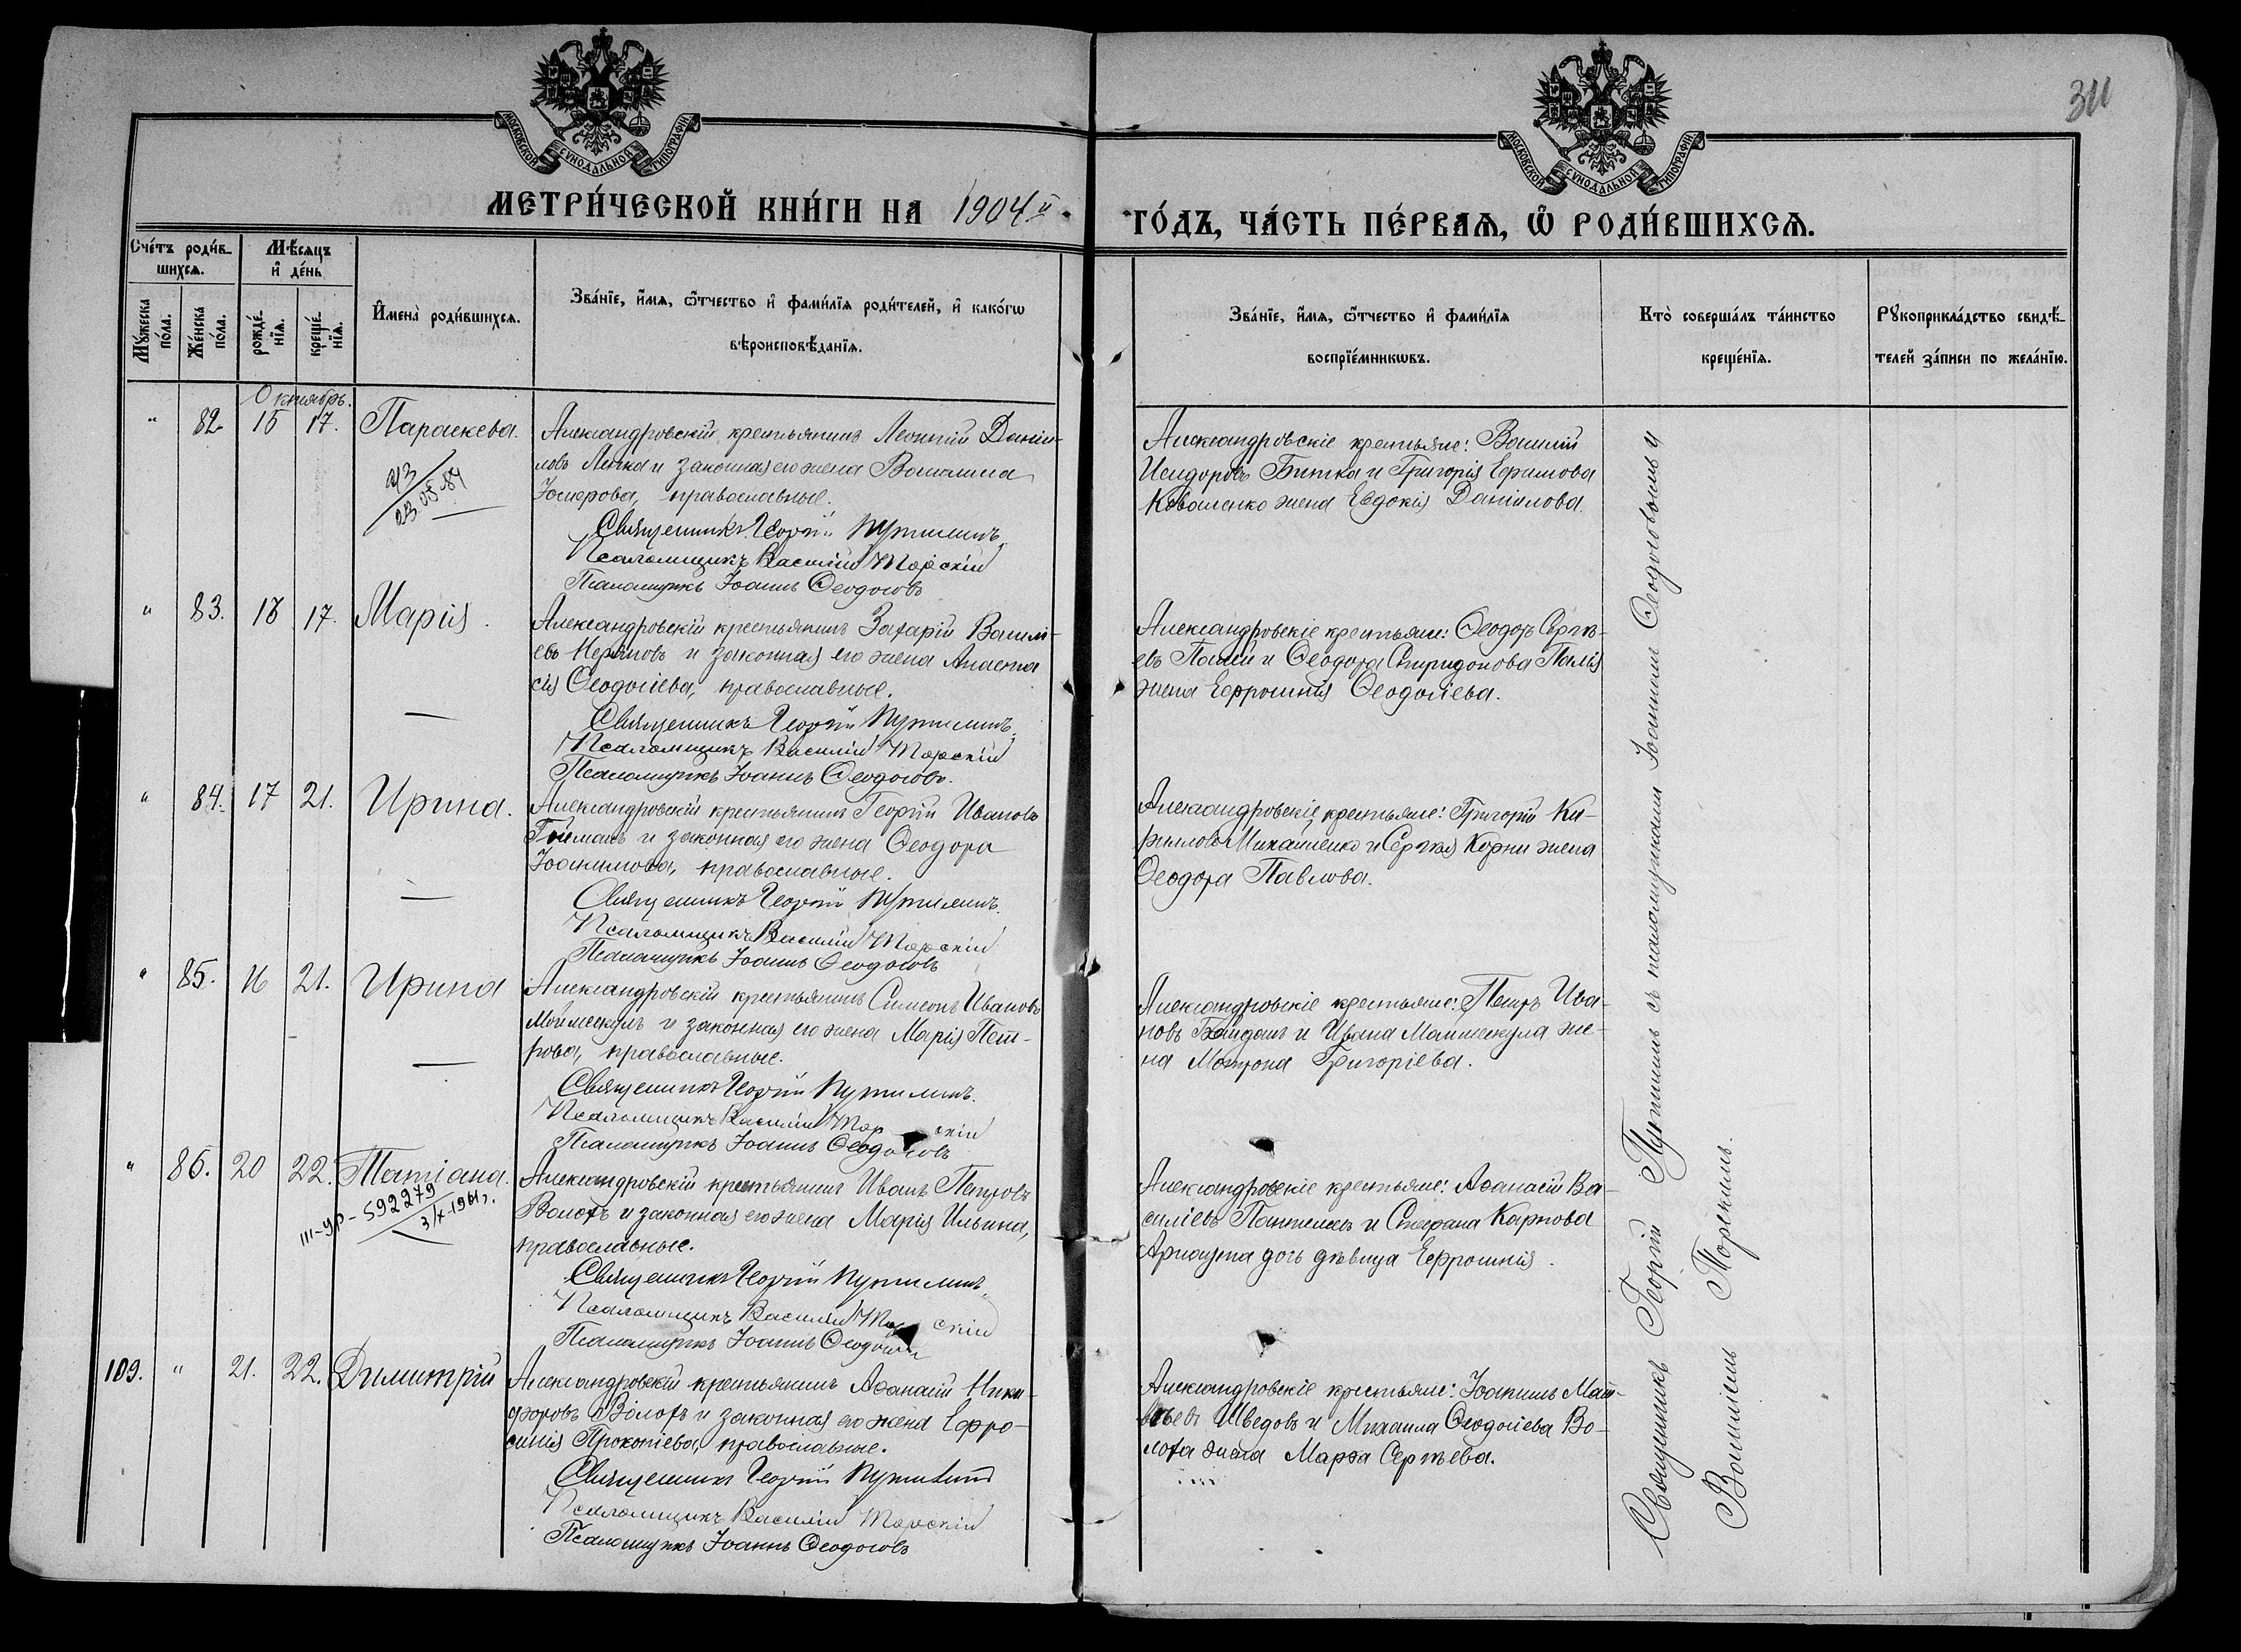 311
МОСКОВСКОЙ СѴНОДАЛЬНОЙ ТИПОГРАФІИ
МОСКОВСКОЙ СѴНОДАЛЬНОЙ ТИПОГРАФІИ
МЕТРИ́ЧЕСКОЙ КНИ́ГИ НА 1904й
ГО́ДЪ, ЧА́СТЬ ПЕ́РВАЯ, Ѽ РОДИ́ВШИХСЯ.
Сче́тъ роди́в-
шихся.
Мꙋ́жеска по́ла.
Же́нска по́ла.
Мѣ́сяцъ
и҆ де́нь
рожде́-нїя.
креще́-нїя.
И҆мена̀ роди́вшихся.
Зва́нїе, и҆́мя, ѻ҆́тчество и҆ фами́лїя роди́телей, и҆ како́гѡ
вѣроисповѣ́данїя.
Зва́нїе, и҆́мя, ѻ҆́тчество и҆ фами́лїя
воспрїе́мникѡвъ.
Кто̀ соверша́лъ та́инство
креще́нїя.
Рꙋкоприкла́дство свидѣ́-
телей за́писи по жела́нїю.
Октябрь.
" 82. 15 17. Параскева.
Александровскій крестьянинъ Леонтій Даніи-
ловъ и законная его жена Василиса
православные.
Священникъ Георгій Путилинъ.
Псаломщикъ Василій Торскій
Псаломщикъ Іоаннъ Ѳеодосовъ
23.05.84
Александровскіе крестьяне: Василій
Исидоровъ Битка и Григорія Ефимова
Коваленко жена Евдокія Даніилова.
" 83. 18 17. Марія.
Александровскій крестьянинъ Захарій Васильі-
евъ и законная его жена Анаста
сія Ѳеодосіева, православные.
Священникъ Георгій Путилинъ.
Псаломщикъ Василій Торскій
Псаломщикъ Іоаннъ Ѳеодосовъ.
Александровскіе крестьяне: Ѳеодоръ Сергѣ-
евъ Палій и Ѳеодора Спиридонова Палія
жена Ефросинія Ѳеодосіева.
" 84. 17 21. Ирина.
Александровскій крестьянинъ Георгій Ивановъ
и законная его жена Ѳеодора
Іоакимова, православные.
Священникъ Георгій Путилинъ.
Псаломщикъ Василій Торскій
Псаломщикъ Іоаннъ Ѳеодосовъ
Александровскіе крестьяне: Григорій Ки-
рилловъ Михайленко и Сергѣя Корни жена
Ѳеодора Павлова.
" 85. 16 21. Ирина
Александровскій крестьянинъ Симеонъ Ивановъ
и законная его жена Марія Пет-
рова, православные.
Священникъ Георгій Путилинъ.
Псаломщикъ Василій Торскій
Псаломщикъ Іоаннъ Ѳеодосовъ
Александровскіе крестьяне: Петръ Ива-
новъ и Ивана же-
на Матрона Григоріева.
" 86. 20 22. Татіана.
Александровскій крестьянинъ Иванъ Петровъ
Волохъ и законная его жена Марія Ильина,
православные.
Священникъ Георгій Путилинъ.
Псаломщикъ Василій Торскій
Псаломщикъ Іоаннъ Ѳеодосовъ
III-УР-592279
3/X-1961г.
Александровскіе крестьяне: Аѳанасій Ва-
силіевъ и Стефана Карпова
Арнаута дочь дѣвица Ефросинія.
109. " 21. 22. Димитрій
Александровскій крестьянинъ Аѳанасій Ники-
форовъ Волохъ и законная его жена Ефро-
синія Прокопіева, православные.
Священникъ Георгій Путилинъ
Псаломщикъ Василій Торскій
Псаломщикъ Іоаннъ Ѳеодосовъ
Александровскіе крестьяне: Іоаннъ Мат-
ѳѣевъ Шведовъ и Михаила Ѳеодосіева Во-
лоха жена Марѳа Сергѣева.
Священникъ Георгій Путилинъ съ псаломщиками Іоанномъ Ѳеодосовымъ и
Василіемъ Торскимъ.